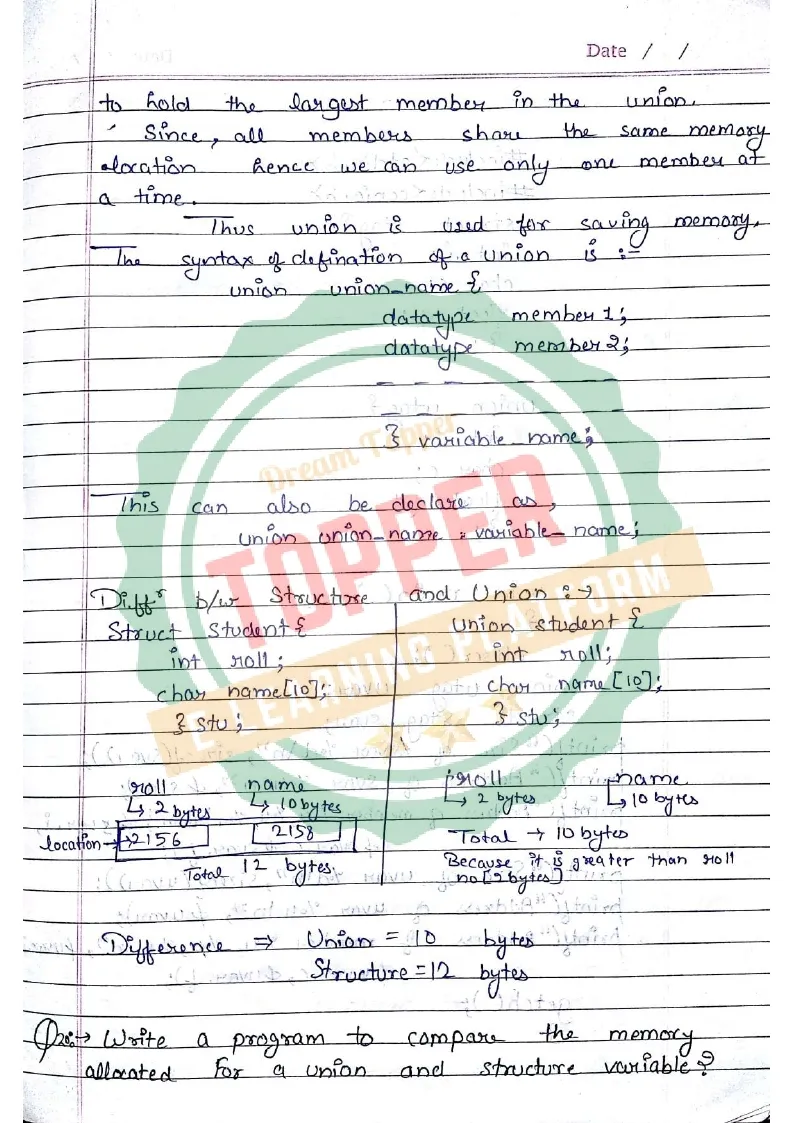 Date / /
to hold the largest member in the union.
Since, all members share the same memory
location hence we can use only one member at
a time.
Thus union is used for saving memory.
The syntax of defination of a union is :-
union union_name {
datatype member 1;
datatype member 2;
_ _ _ _
_ _
} variable_name;
This can also be declare as,
union union_name = variable_name;
Diffr b/w Structure and Union :→
Struct Student {
int roll;
char name[10];
} stu;
Union student {
int roll;
char name [10];
} stu;
roll name
↳ 2 bytes ↳ 10 bytes
location → 2156 2158
Total 12 bytes.
roll name
↳ 2 bytes ↳ 10 bytes
Total → 10 bytes
Because it is greater than roll
no [2 bytes]
Difference ⇒ Union = 10 bytes
Structure = 12 bytes
Q20:→ Write a program to compare the memory
allocated for a union and structure variable?
Dream Topper
TOPPER
E-LEARNING PLATFORM